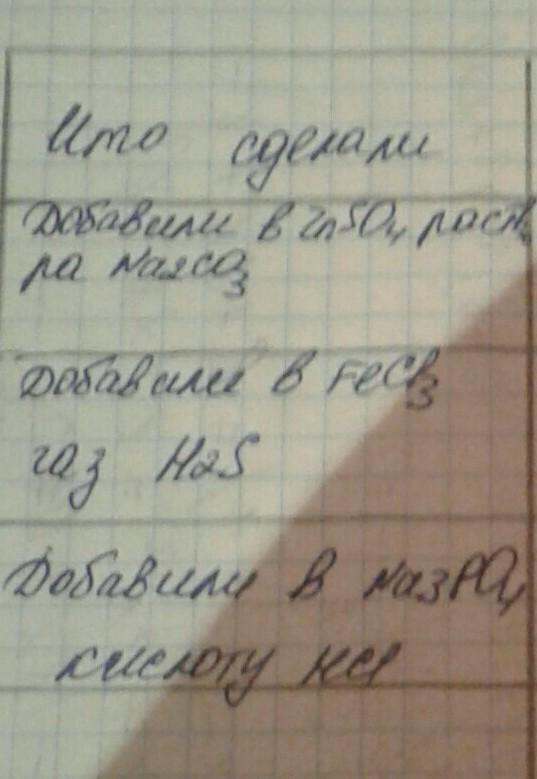 Что сделали
Добавили в ZnSO₄ раств
ра Na2CO₃
Добавили в FeCl₃
газ H2S
Добавили в Na3PO₄
кислоту HCl